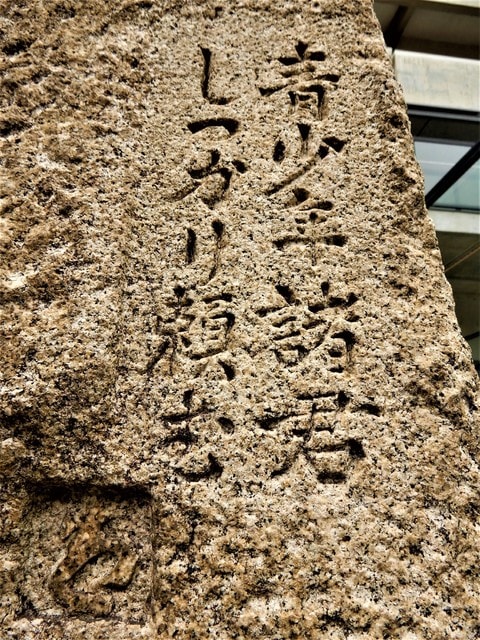 青少年諸君
しっかり頼む